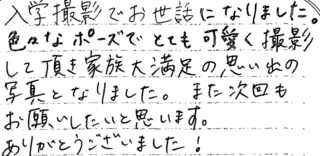 入学撮影でお世話になりました。
色々なポーズでとても可愛く撮影
して頂き家族大満足の思い出の
写真となりました。また次回も
お願いしたいと思います。
ありがとうございました!